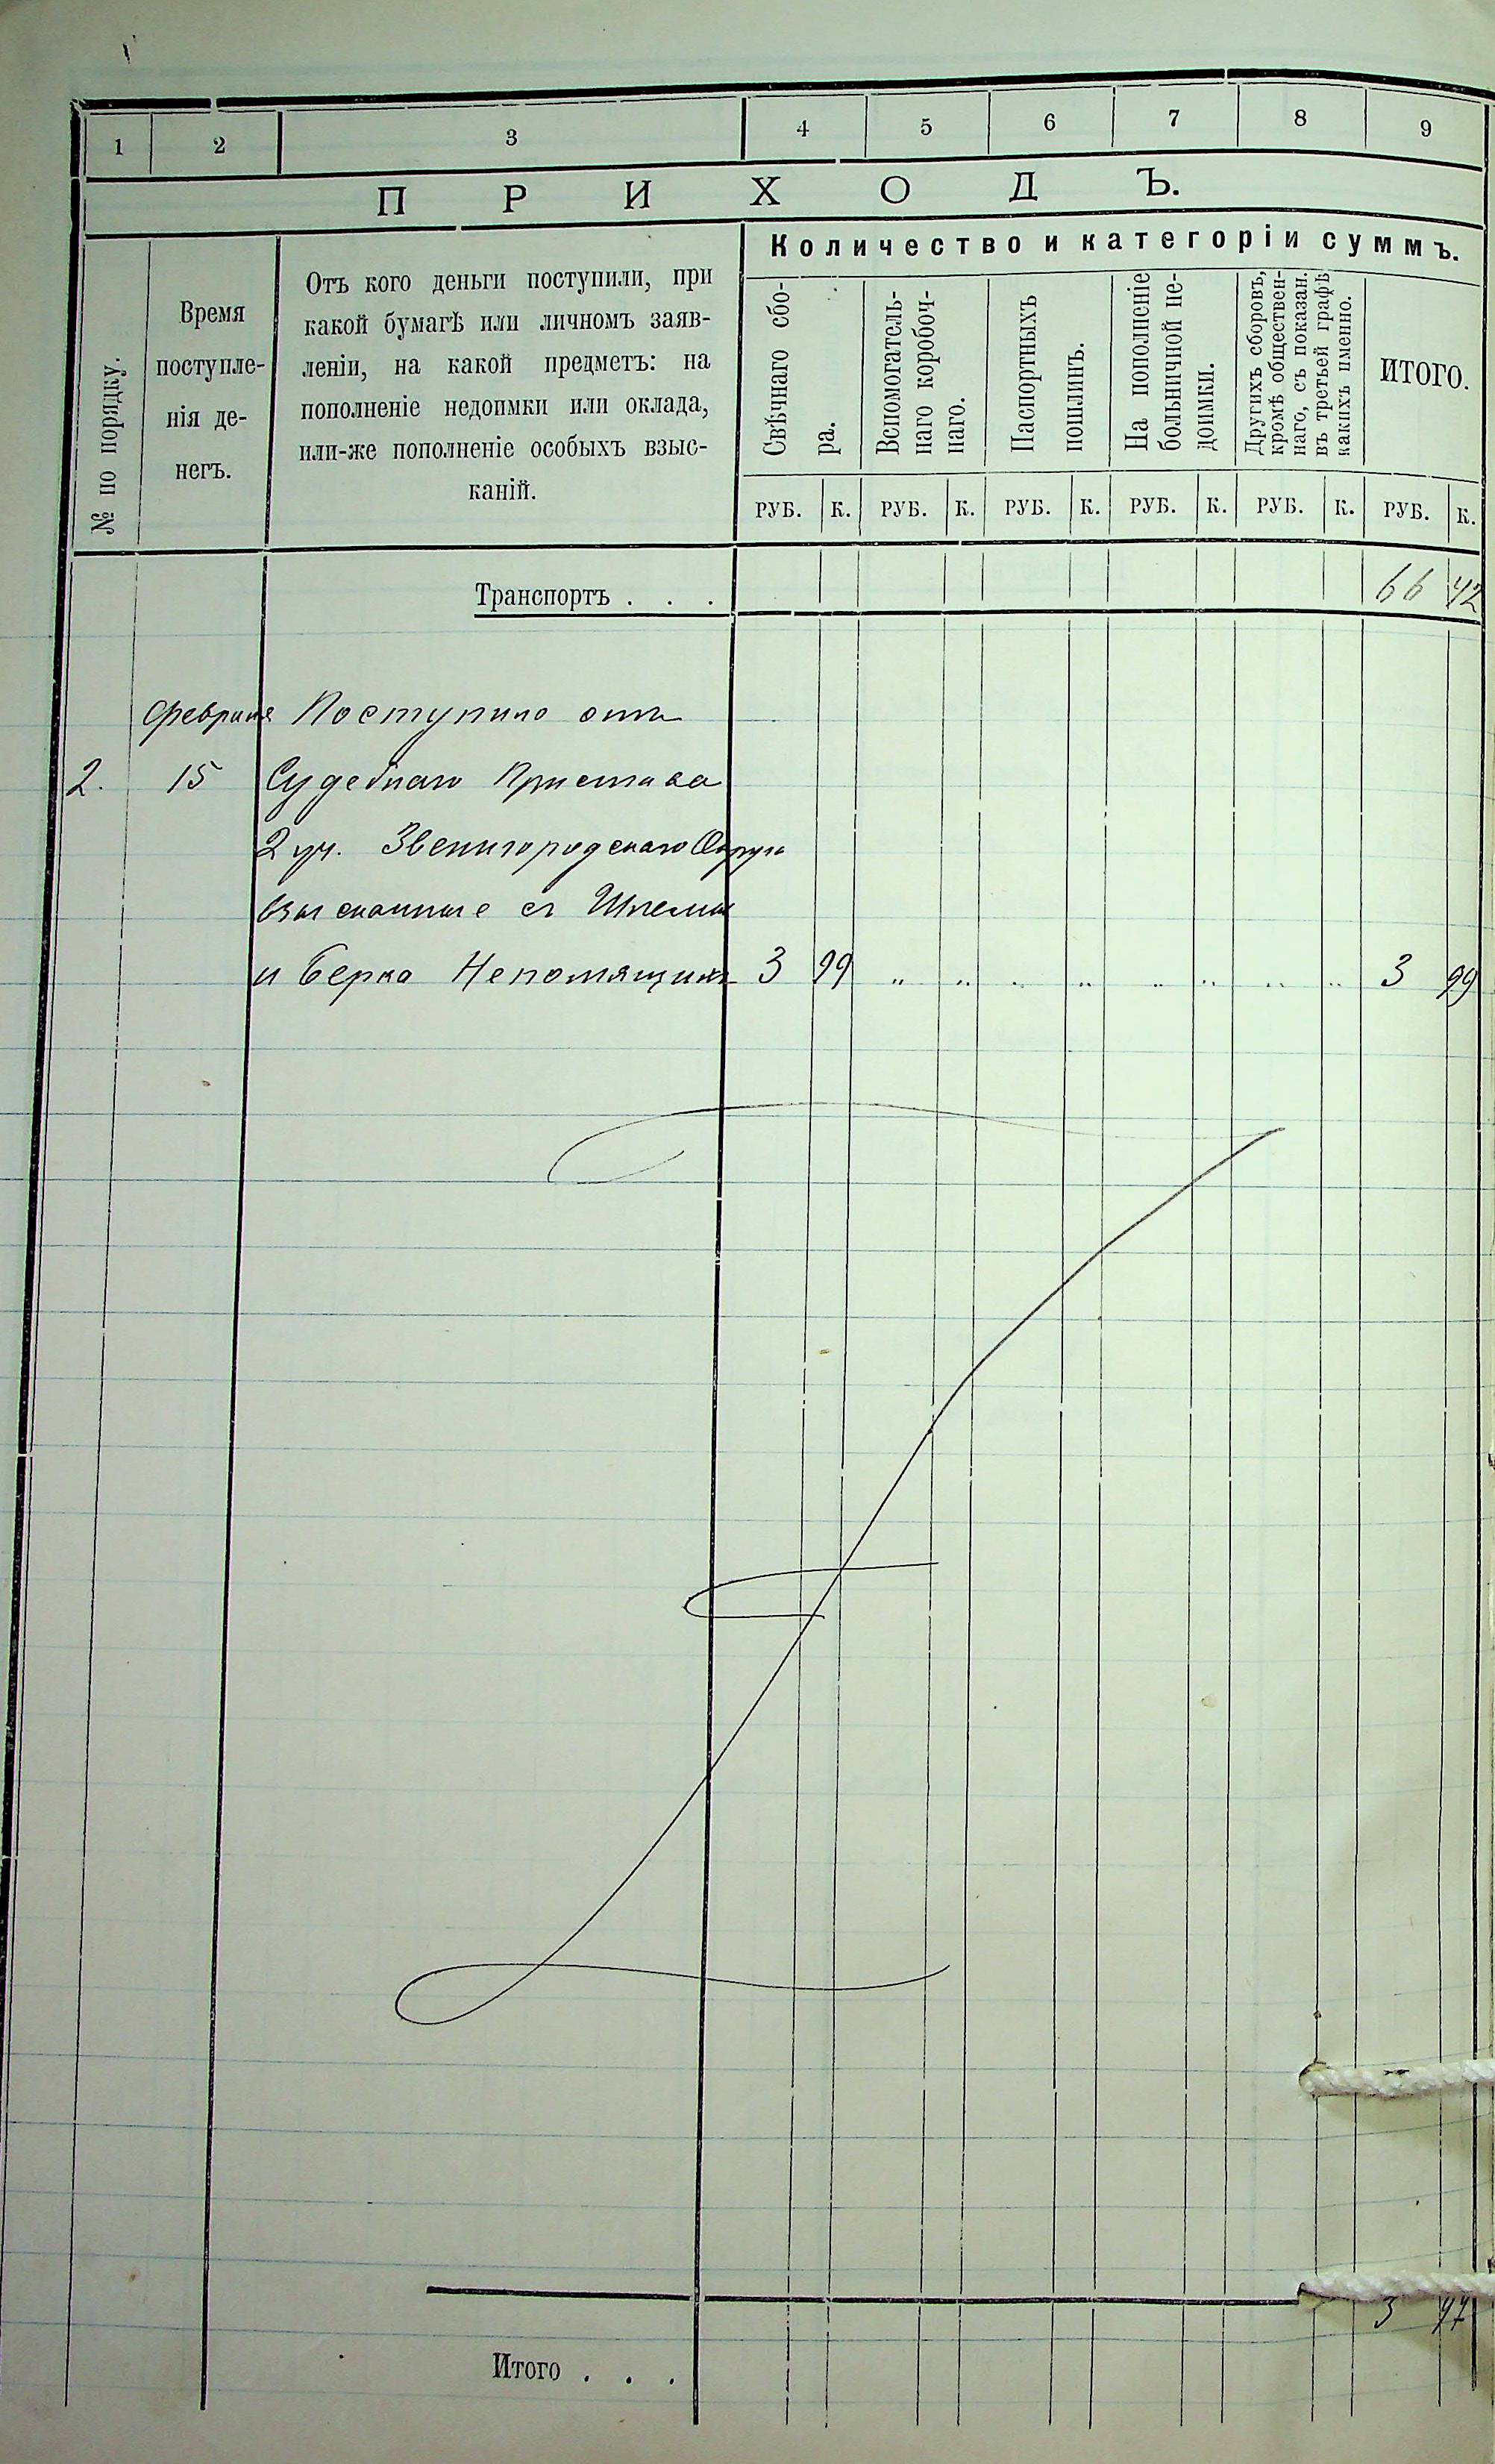 1 2 3 4 5 6 7 8 9
ПРИХОДЪ.
№ по порядку.
Время
поступле-
нія де-
негъ.
Отъ кого деньги поступили, при
какой бумагѣ или личномъ заяв-
леніи, на какой предметъ: на
пополненіе недоимки или оклада,
или-же пополненіе особыхъ взыс-
каній.
Количество и категоріи суммъ.
Свѣчнаго сбо-
ра.
Вспомогатель-
наго коробоч-
наго.
Паспортныхъ
пошлинъ.
На пополненіе
больничной не-
доимки.
Другихъ сборовъ,
кромѣ обществен-
наго, съ показан.
въ третьей графѣ
какихъ именно.
ИТОГО.
РУБ. К. РУБ. К. РУБ. К. РУБ. К. РУБ. К. РУБ. К.
Транспортъ . . . 66 42
Февраля Поступило отъ
2. 15 Судебнаго Пристава
2 уч. Звенигородскаго Округа
взысканные съ
и Берка Непомящихъ 3 99 „ „ „ „ „ „ „ „ 3 99
3
Итого . . .